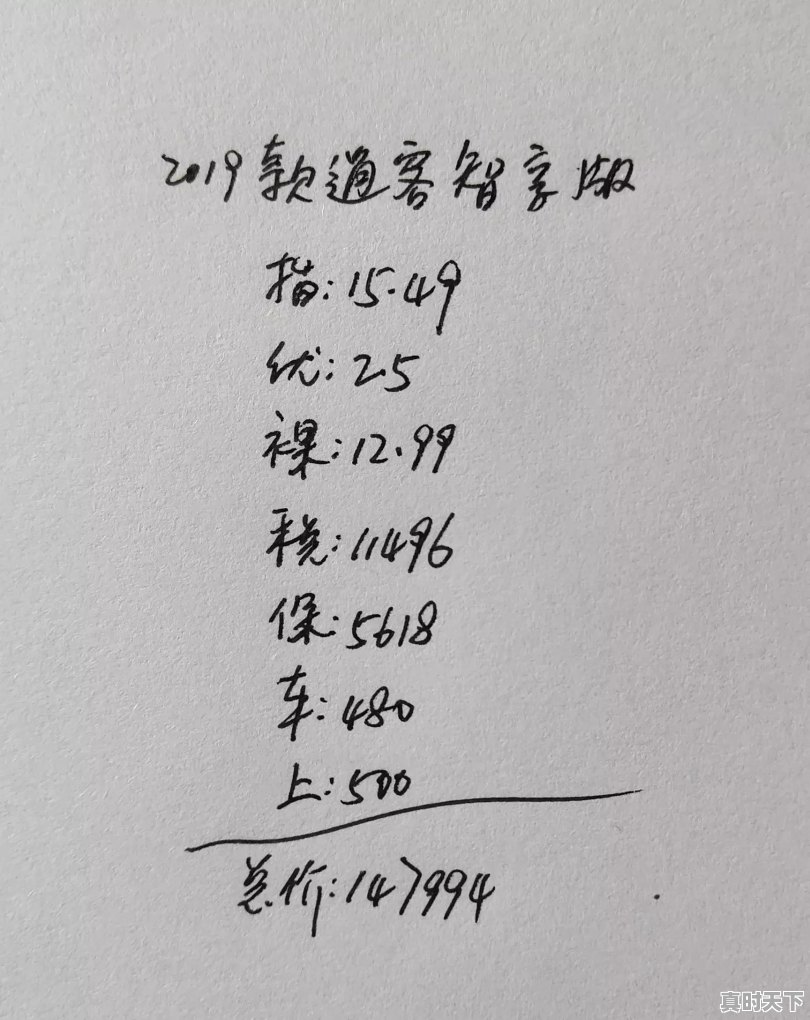 2019款逍客智享版
指:15.49
优:2.5
裸:12.99
税:11496
保:5618
车:480
上:500
总价:147994
真时天下